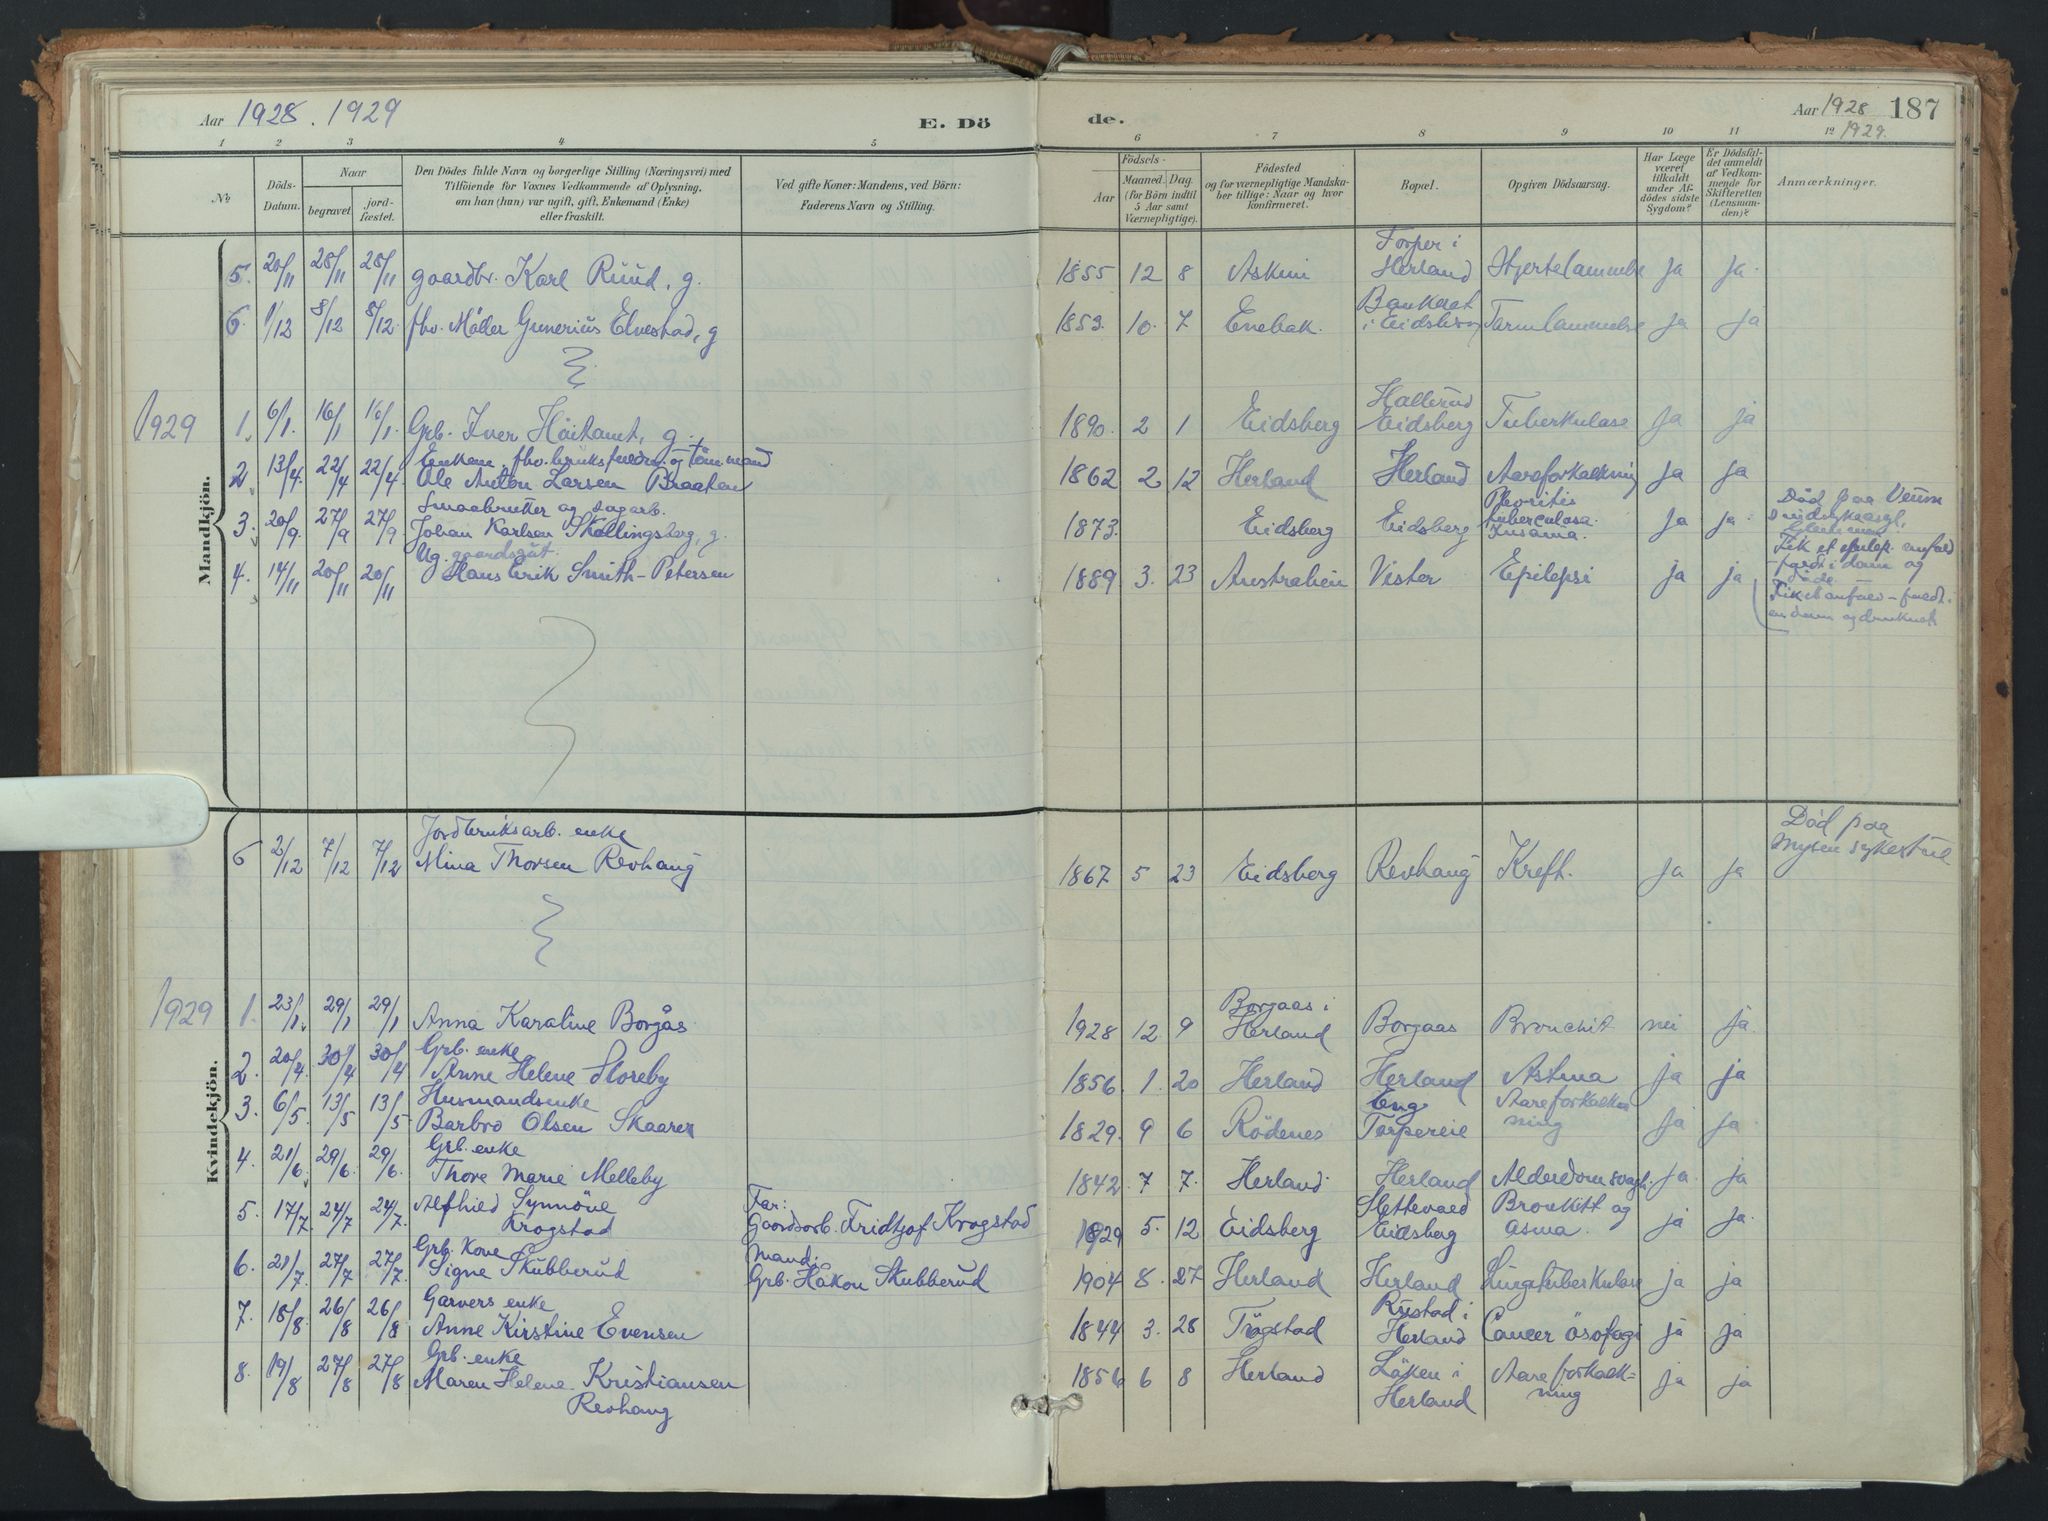 Aar 1928. 1929 E. Dö
1 2 3 4 5
No. Döds-Datum. Naar begravet. jord-fæstet. Den Dödes fulde Navn og borgerlige Stilling (Næringsvei) med Tilföiende for Voxnes Vedkommende af Oplysning, om han (hun) var ugift, gift, Enkemand (Enke) eller fraskilt. Ved gifte Koner: Mandens, ved Börn: Faderens Navn og Stilling.
Mandkjön.
5. 20/11 28/11 28/11 gaardbr. Karl Ruud, g.
6. 1/12 8/12 8/12 fhv. Möller Gunerius Elvestad, g
1929 1. 6/1. 16/1 16/1. Grb. Iver Höitomt, g.
2 13/4. 22/4 22/4
Ole Anton Larsen Braaten
Smaabruker og dagarb.
3. 20/9. 27/9 27/9 Johan Karlsen Skollingsberg, g.
Ug. gaardsgut.
4. 14/11 20/11 20/11 Hans Erik Smith-Petersen
Kvindekjön.
Jordbruksarb. enke
6 2/12 7/12 7/12 Mina Thorsen Revhaug
1929 1. 23/1. 29/1 29/1 Anna Karaline Borgås
Grb. enke
2. 20/4. 30/4 30/4 Anne Helene Storeby
Husmandsenke
3. 6/5 13/5 13/5 Barbro Olsen Skaarer
Grb. enke
4. 21/6 29/6. 29/6. Thore Marie Melleby
5. 17/7. 24/7 24/7. Alfhild Synnöve Krogstad Far: Gaardsarb. Fridtjof Krogstad
Grb. Kone Mand:
6. 21/7. 27/7 27/7. Signe Skubberud Grb. Håkon Skubberud
Garvers enke
7. 18/8. 26/8 26/8 Anne Kirstine Evensen
Grb. enke
8. 19/8 27/8 27/8 Maren Helene Kristiansen
Revhaug
de. Aar 1928 187
1929.
6 7 8 9 10 11 12
Födsels- Aar Maaned. Dag. (for Börn indtil 5 Aar samt Værnepligtige). Födested og for værnepligtige Mandska-ber tillige: Naar og hvor konfirmeret. Bopæl. Opgiven Dödsaarsag. Har Læge været tilkaldt under Af-dödes sidste Sygdom? Er Dödsfal-det anmeldt af Vedkom-mende for Skifteretten (Lensman-den)? Anmærkninger.
1855 12 8 Askim Torper i Herland Hjertelammelse ja ja
1853. 10. 7 Enebak. i Eidsberg Tarmlammelse ja ja
1890. 2 1 Eidsberg Hallerud Eidsberg Tuberkulose ja ja
1862 2 12 Herland Herland Aareforkalkning ja ja
1873. Eidsberg Eidsberg Pleoritis tuberculosa. Insania. ja ja Död paa Veum sindsykeasyl,
1889 3. 23 Australien Vister Epilepsi ja ja Fik et epilep. anfald - i dam og döde
Fik et anfald - faldt i en dam og druknet
1867 5 23 Eidsberg Revhaug Kreft. ja ja Död paa Mysen sykestue
1928 12 9 Borgaas i Herland Borgaas Bronchit nei ja.
1856. 1. 20 Herland Herland Astma ja ja
1829. 9 6 Rödenes Eng Torpereie Aareforkalkning ja ja
1842. 7 7. Herland Herland Alderdomsvagh. ja. ja
1929 5. 12 Eidsberg Slettevold Eidsberg Bronkitt og asma. ja ja.
1904 8. 27 Herland Herland Lungetuberkulose ja ja
1844 3. 28 Trögstad Rustad i Herland Cancer ösofagi ja ja
1856 6 8 Herland Löken i Herland Aareforkalk=ning ja ja